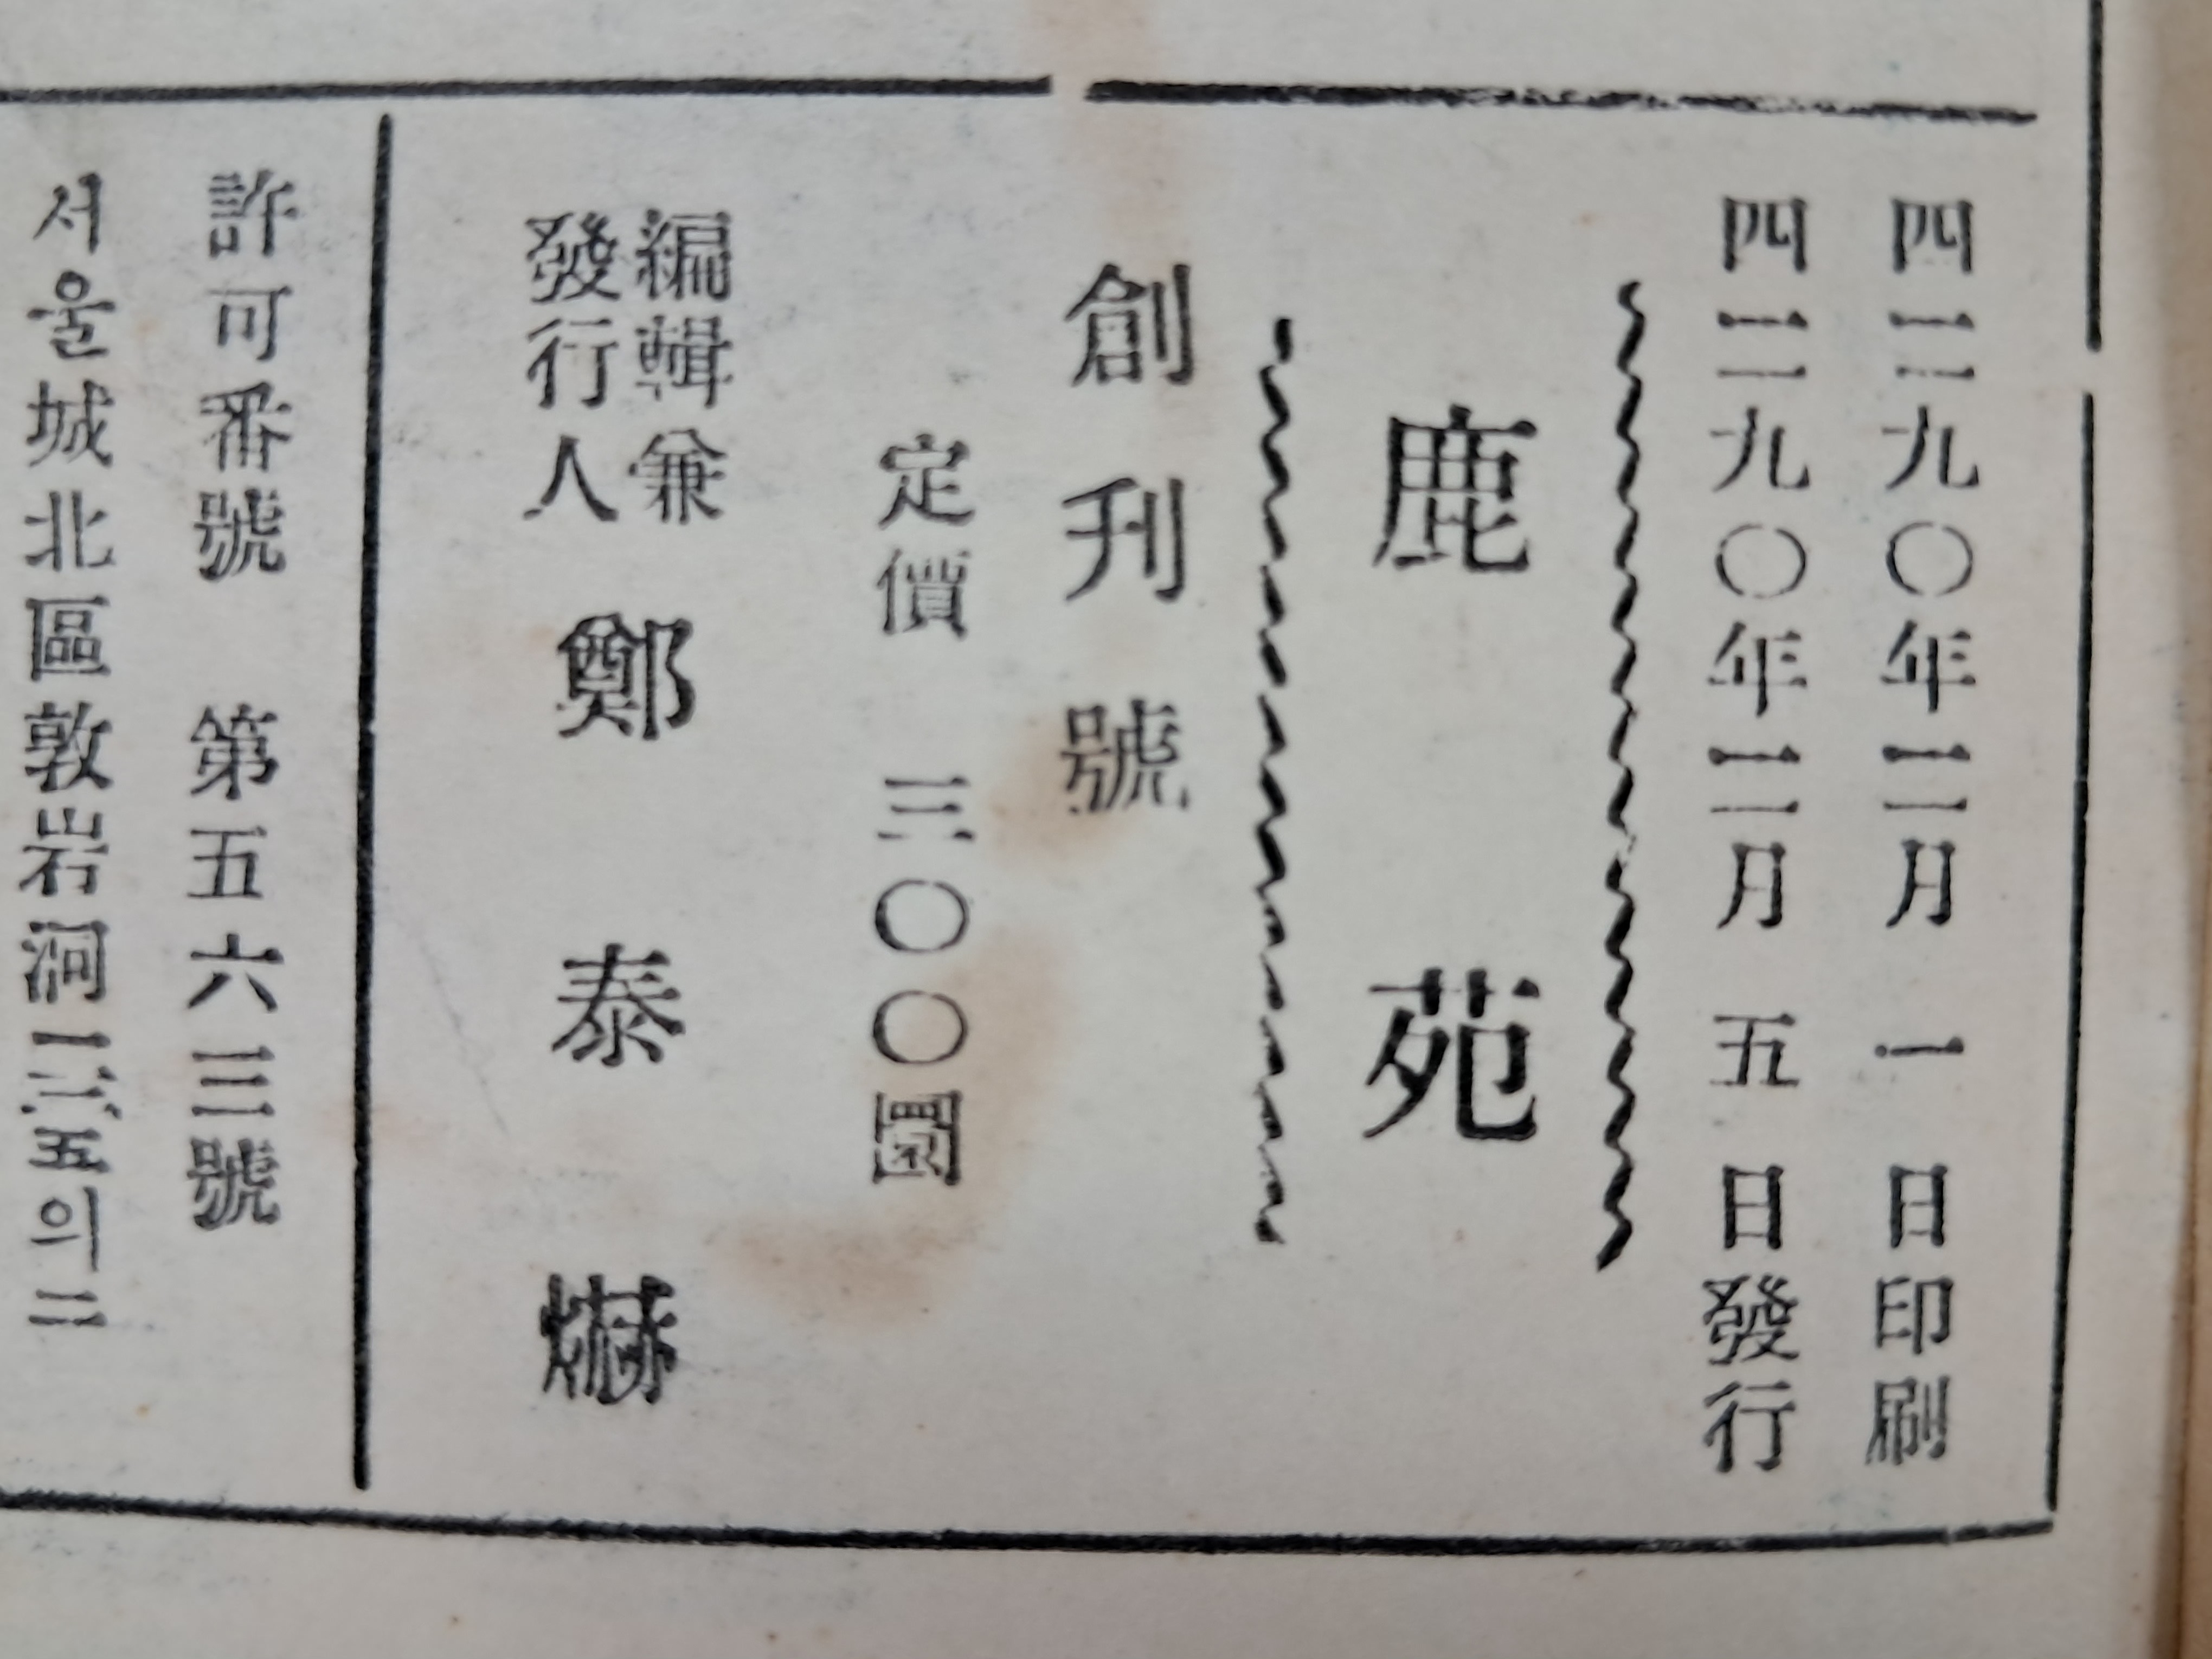 四二九〇年二月 一 日印刷
四二九〇年二月 五 日發行
鹿苑
創刊號
定價 三〇〇圜
編輯兼
發行人 鄭泰爀
許可番號 第五六三號
서울城北區敦岩洞